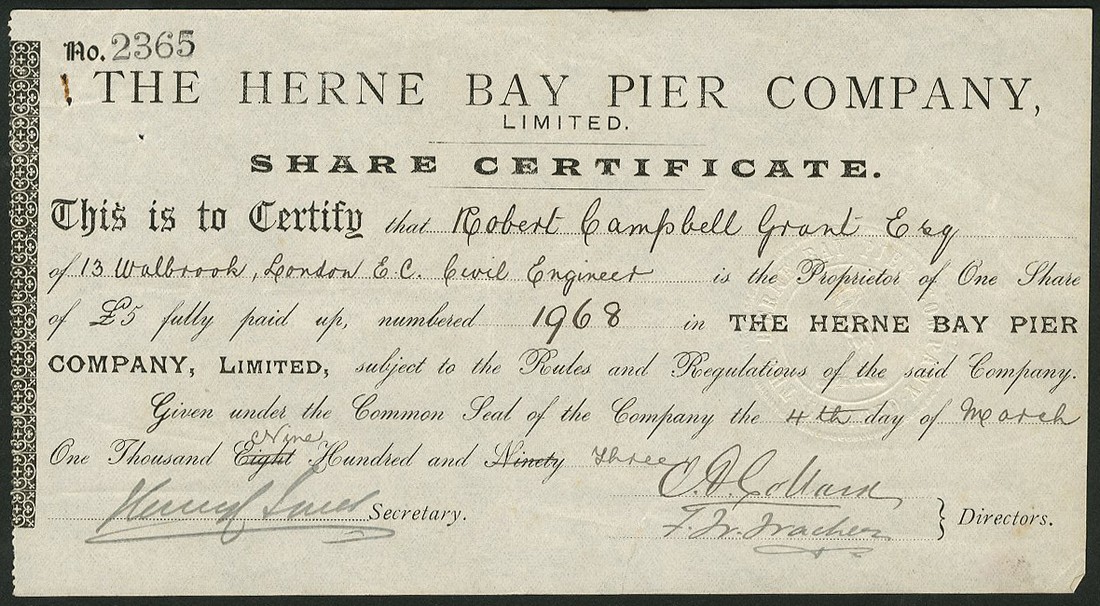 No. 2365
THE HERNE BAY PIER COMPANY,
LIMITED.
SHARE CERTIFICATE.
This is to Certify that Robert Campbell Grant Esq
of 13 Walbrook, London E.C. Civil Engineer is the Proprietor of One Share
of £5 fully paid up, numbered 1968 in THE HERNE BAY PIER
COMPANY, LIMITED, subject to the Rules and Regulations of the said Company.
Given under the Common Seal of the Company the 4th day of March
Nine
One Thousand Eight Hundred and Ninety Three
Secretary.
Directors.